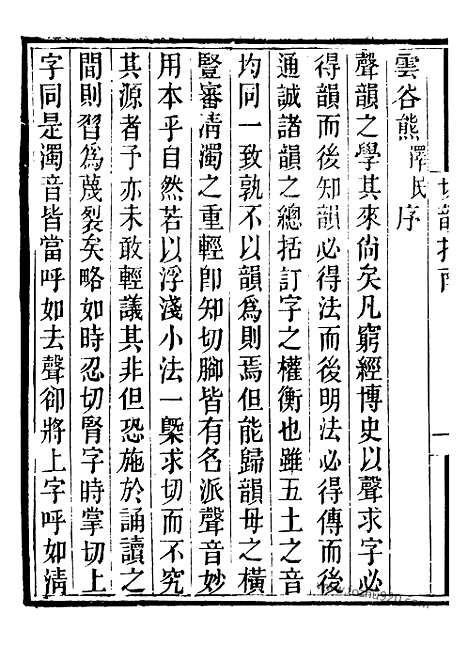 切韻指南
一
雲谷熊澤民序
聲韻之學其來尚矣凡窮經博史以聲求字必
得韻而後知韻必得法而後明法必得傳而後
通誠諸韻之總括訂字之權衡也雖五土之音
均同一致孰不以韻爲則焉但能歸韻母之橫
豎審清濁之重輕卽知切腳皆有名派聲音妙
用本乎自然若以浮淺小法一槩求切而不究
其源者予亦未敢輕議其非但恐施於誦讀之
間則習爲蔑裂矣略如時忍切腎字時掌切上
字同是濁音皆當呼如去聲卻將上字呼如清